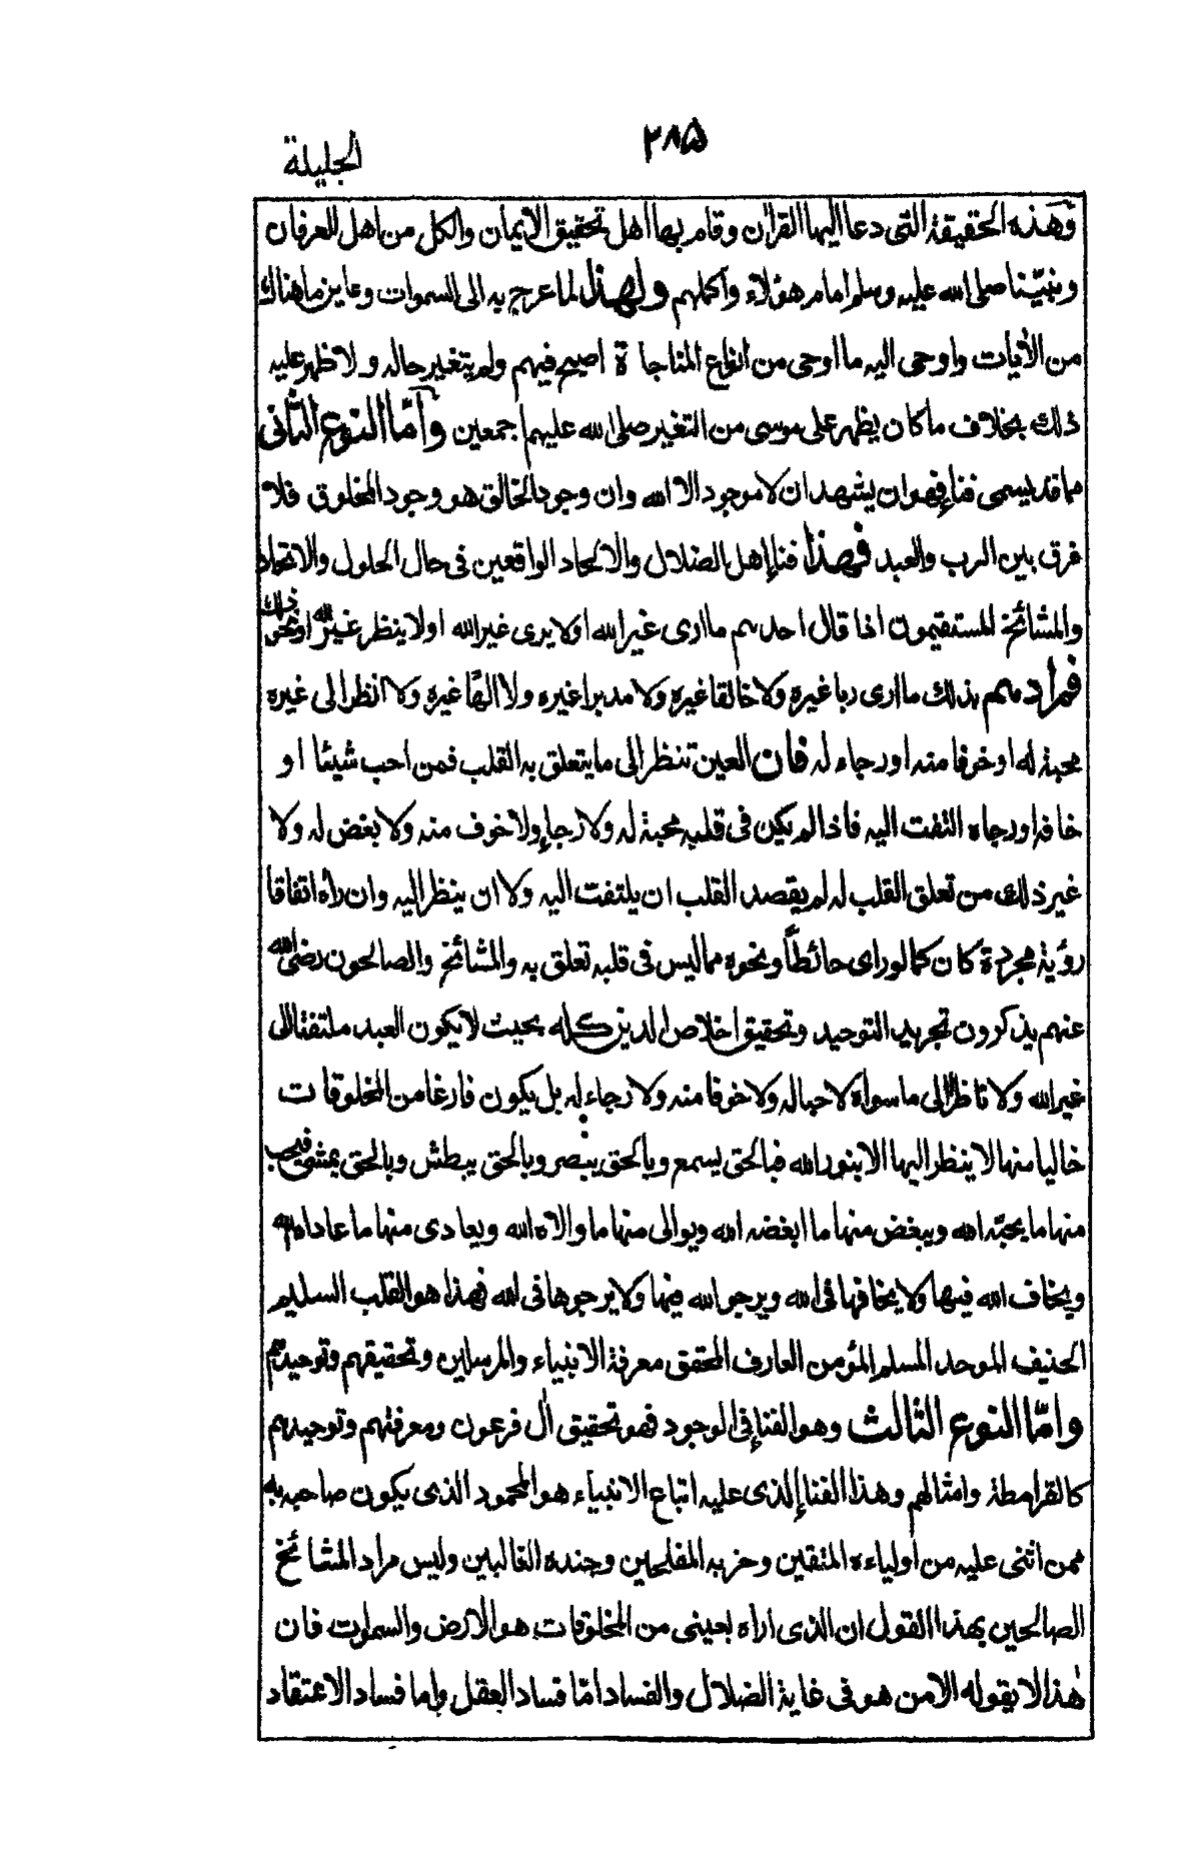 ٢٨٥
الجليلة
وهذه الحقيقة التى دعا اليها القرآن وقام بها اهل تحقيق الايمان والكل من اهل العرفان
ونبيّنا صلى الله عليه وسلم امام هؤلاء واكملهم ولهذا لما عرج به الى السموات وعاين ما هناك
من الآيات واوحى اليه ما اوحى من انواع المناجاة اصبح فيهم ولم يتغير حاله ولا ظهر عليه
ذلك بخلاف ما كان يظهر على موسى من التغير صلى الله عليهم اجمعين وامّا النوع الثانى
مما قد يسمى فناء فهو ان يشهد ان لا موجود الا الله وان وجود الخالق هو وجود المخلوق فلا
فرق بين الرب والعبد فهذا فناء اهل الضلال والالحاد الواقعين فى حال الحلول والاتحاد
والمشائخ المستقيمون اذا قال احدهم ما ارى غير الله او لا يرى غير الله او لا ينظر غير الله او نحو ذلك
فمرادهم بذلك ما ارى ربا غيره ولا خالقا غيره ولا مدبرا غيره ولا الها غيره ولا انظر الى غيره
محبة له او خوفا منه او رجاء له فان العين تنظر الى ما يتعلق به القلب فمن احب شيئا او
خافه او رجاه التفت اليه فاذا لم يكين فى قلبه محبة له ولا رجاء ولا خوف منه ولا بغض له ولا
غير ذلك من تعلق القلب له لم يقصد القلب ان يلتفت اليه ولا ان ينظر اليه وان رآه اتفاقا
رؤية مجردة كان كما لو راى حائطاً ونحوه مما ليس فى قلبه تعلق به والمشائخ والصالحون رضى الله
عنهم يذكرون تجريد التوحيد وتحقيق اخلاص الدين كله بحيث لا يكون العبد ملتفتا الى
غير الله ولا ناظرا الى ما سواه لا حبا له ولا خوفا منه ولا رجاء له بل يكون فارغا من المخلوقات
خاليا منها لا ينظر اليها الا بنور الله فبالحق يسمع وبالحق يبصر وبالحق يبطش وبالحق يمشى فيحب
منها ما يحبّه الله ويبغض منها ما ابغضه الله ويوالى منها ما والاه الله ويعادى منها ما عاداه الله
ويخاف الله فيها ولا يخافها فى الله ويرجو الله فيها ولا يرجوها فى الله فهذا هو القلب السليم
الحنيف الموحد المسلم المؤمن العارف المحقق معرفة الانبياء والمرسلين وتحقيقهم وتوحيدهم
وامّا النوع الثالث وهو الفناء فى الوجود فهو تحقيق آل فرعون ومعرفتهم وتوحيدهم
كالقرامطة وامثالهم وهذا الفناء الذى عليه اتباع الانبياء هو المحمود الذى يكون صاحبه به
ممن اثنى عليه من اولياءه المتقين وحزبه المفلحين وجنده الغالبين وليس مراد المشائخ
الصالحين بهذا القول ان الذى اراه بعينى من المخلوقات هو الارض والسموت فان
هذا لا يقوله الا من هو فى غاية الضلال والفساد امّا فساد العقل واما فساد الاعتقاد